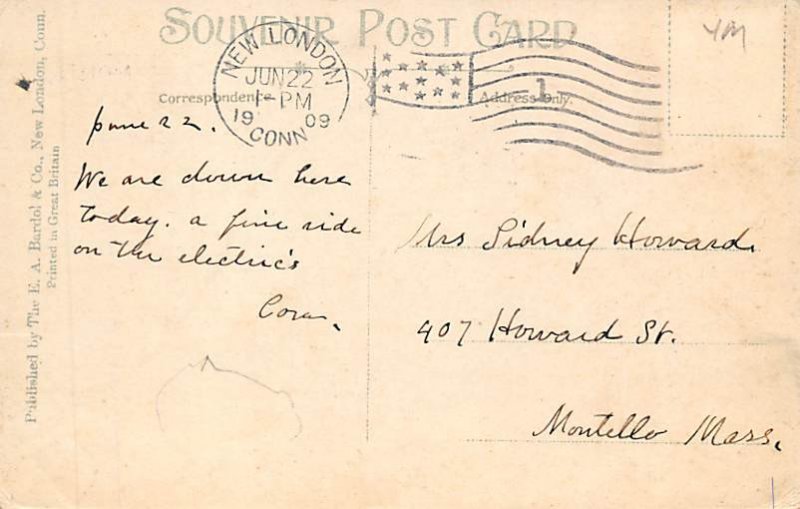 SOUVENIR POST CARD
NEW LONDON
JUN 22
-PM
19 09
CONN
1
YM
Correspondence
Address Only.
June 22.
We are down here
today. a fine ride
on the electric's
Cora.
Mrs Sidney Howard
407 Howard St.
Montello Mass.
Published by The E. A. Bardol & Co., New London, Conn.
Printed in Great Britain